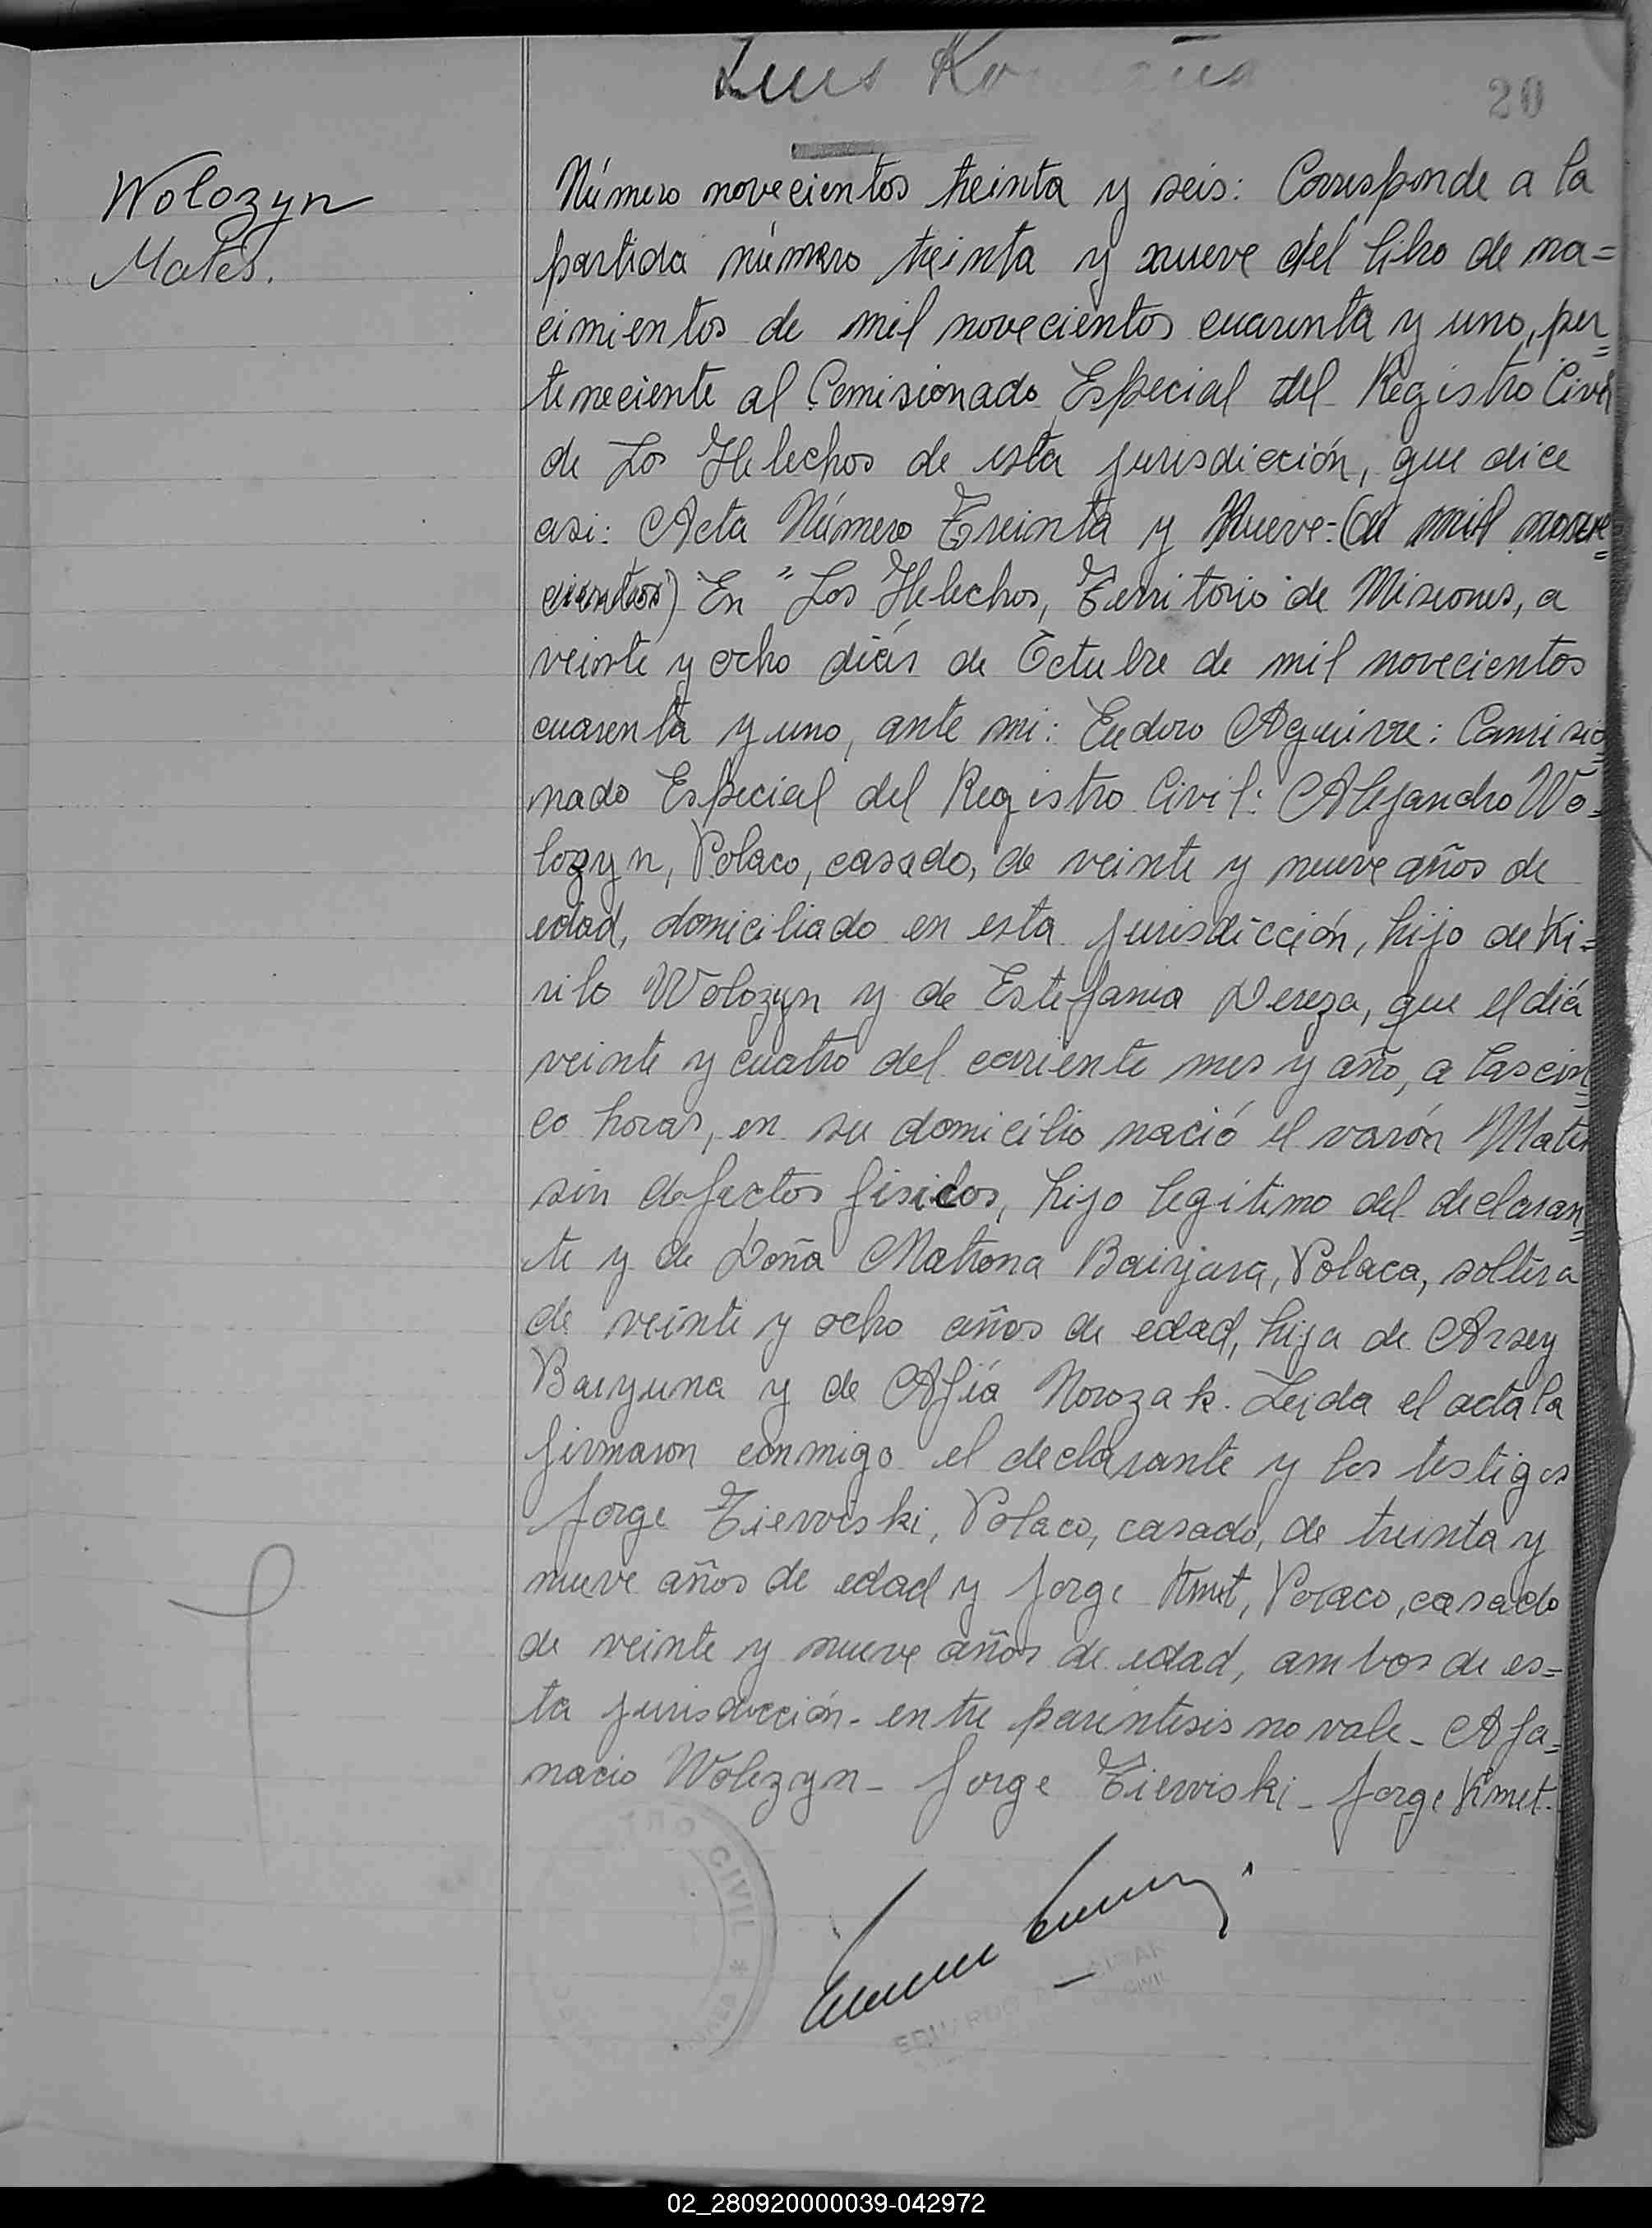 Luis
20
Wolozyn
Matés.
Número novecientos treinta y seis: Corresponde a la
partida número treinta y nueve del libro de na=
cimientos de mil novecientos cuarenta y uno, per=
teneciente al Comisionado Especial del Registro Civil
de Los Helechos de esta jurisdicción, que dice
asi: Acta Número Treinta y Nueve-(de mil nove=
cientos) En "Los Helechos, Territorio de Misiones, a
veinte y ocho diás de Octubre de mil novecientos
cuarenta y uno, ante mi: Eudoro Aguirre: Comisio=
nado Especial del Registro Civil: Alejandro Wo=
lozyn, Polaco, casado, de veinte y nueve años de
edad, domiciliado en esta jurisdicción, hijo de Ki=
rilo Wolozyn y de Estefania Dereza, que el diá
veinte y cuatro del corriente mes y año, a las cin=
co horas, en su domicilio nació el varón Matés
sin defectos fisicos, hijo legitimo del declaran=
te y de Doña Matrona Bairjara, Polaca, soltera
de veinte y ocho años de edad, hija de Arsey
Baryuna y de Afiá Norozak. Leida el acta la
firmaron conmigo el declarante y los testigos
Jorge Tiewiski, Polaco, casado, de treinta y
nueve años de edad y Jorge Kmet, Polaco, casado
de veinte y nueve años de edad, ambos de es=
ta jurisdicción- entre paréntesis no vale- Afa=
nacio Wolozyn- Jorge Tiewiski- Jorge Kmet.
CIVIL
02_280920000039-042972